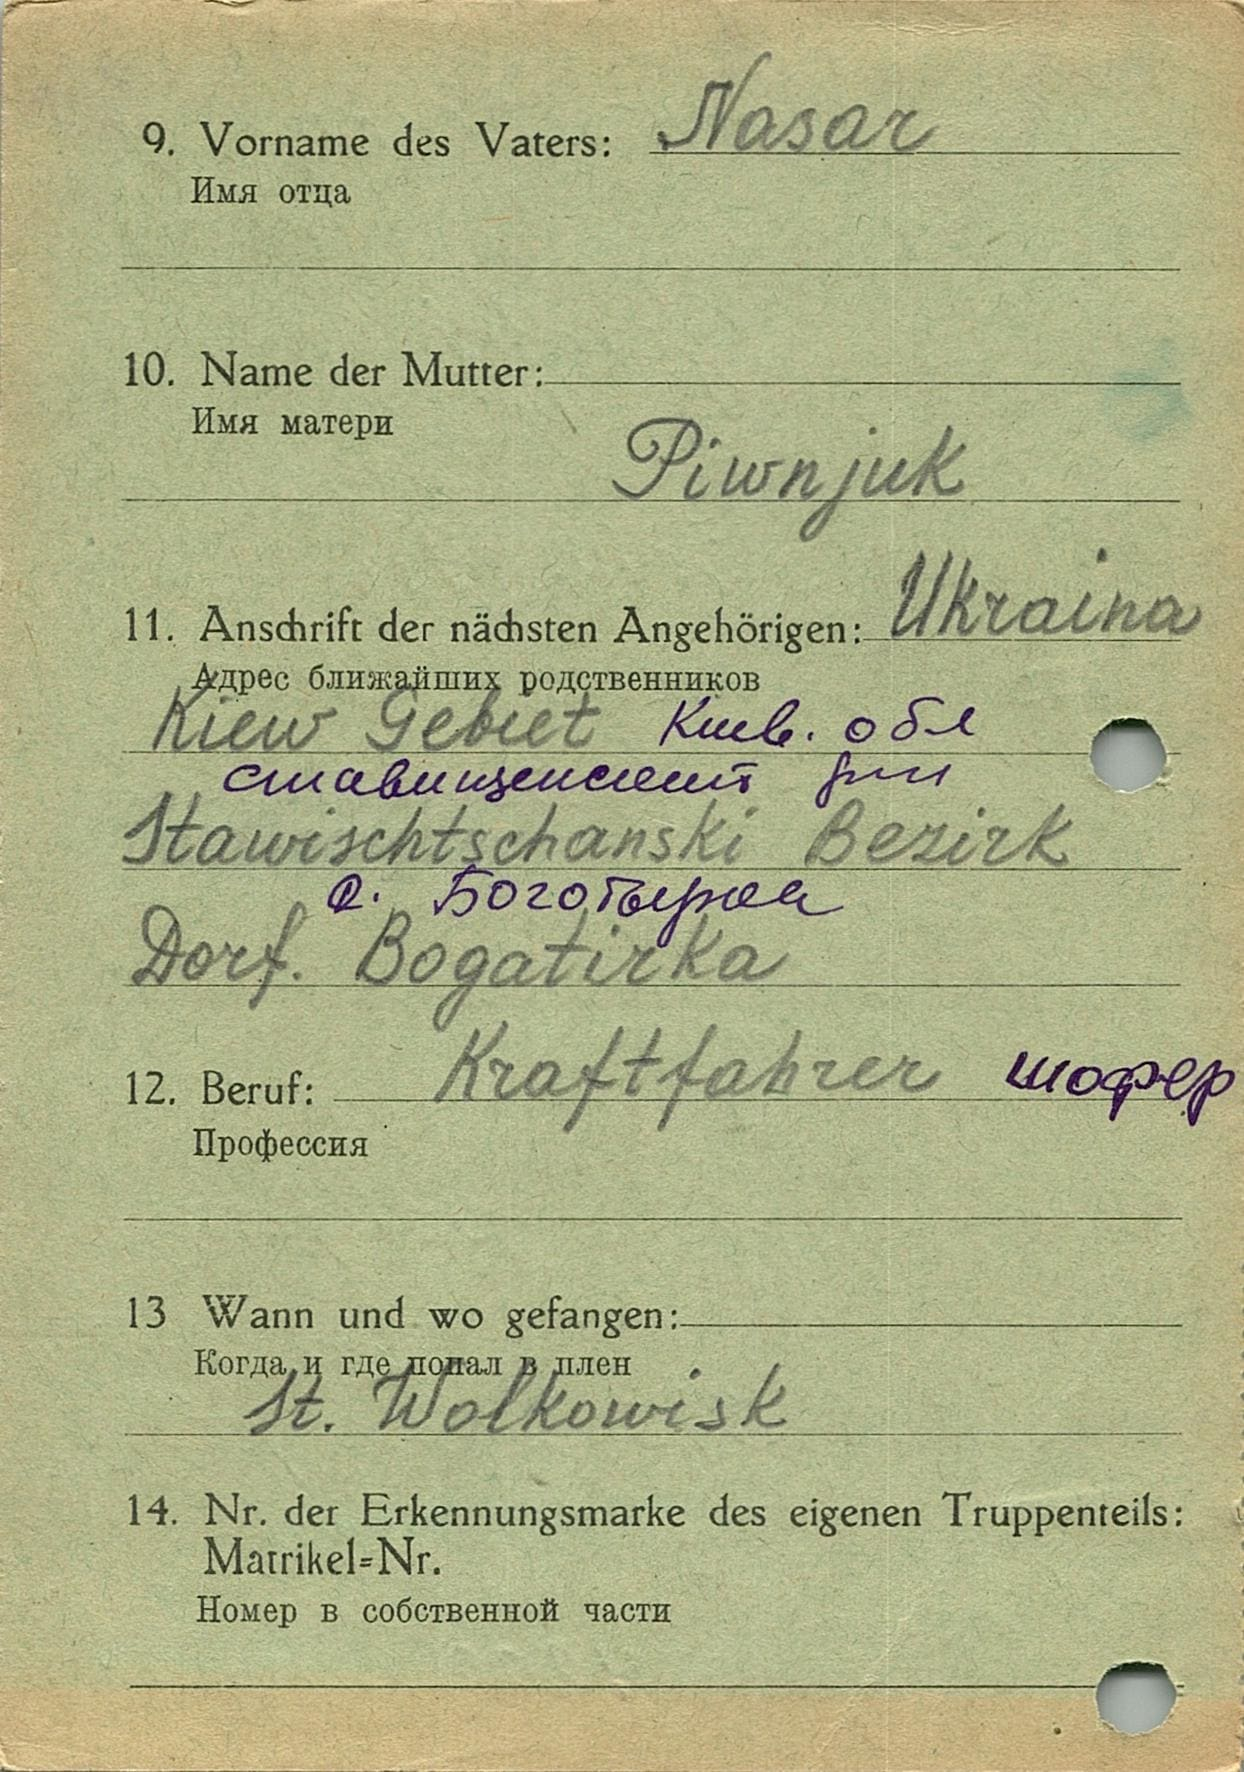 9. Vorname des Vaters: Nasar
Имя отца
10. Name der Mutter:
Имя матери
Piwnjuk
11. Anschrift der nächsten Angehörigen: Ukraina
Адрес ближайших родственников
Kiew Gebiet Киев. обл
ставищенский р-н
Stawischtschanski Bezirk
с. Боготырка
Dorf. Bogatirka
12. Beruf: Kraftfahrer шофер
Профессия
13 Wann und wo gefangen:
Когда и где попал в плен
St. Wolkowisk
14. Nr. der Erkennungsmarke des eigenen Truppenteils:
Matrikel=Nr.
Номер в собственной части